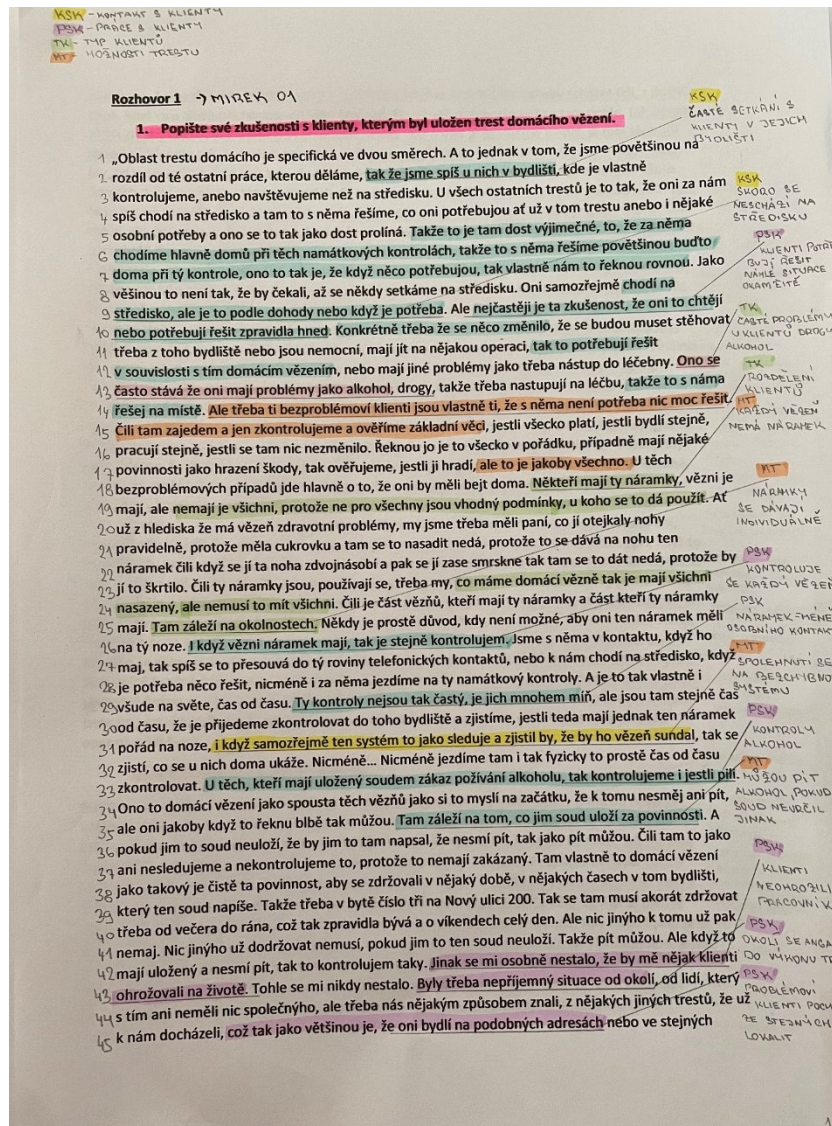 KSK - KONTAKT S KLIENTY
PSK - PRÁCE S KLIENTY
TK - TYP KLIENTŮ
MT - MOŽNOSTI TRESTU
Rozhovor 1 → MIREK 01
1. Popište své zkušenosti s klienty, kterým byl uložen trest domácího vězení.
KSK
ČASTÉ SETKÁNÍ S
KLIENTY V JEJICH
BYDLIŠTI
1 „Oblast trestu domácího je specifická ve dvou směrech. A to jednak v tom, že jsme povětšinou na
2 rozdíl od té ostatní práce, kterou děláme, tak že jsme spíš u nich v bydlišti, kde je vlastně
3 kontrolujeme, anebo navštěvujeme než na středisku. U všech ostatních trestů je to tak, že oni za nám
4 spíš chodí na středisko a tam to s něma řešíme, co oni potřebujou ať už v tom trestu anebo i nějaké
5 osobní potřeby a ono se to tak jako dost prolíná. Takže to je tam dost výjimečné, to, že za něma
6 chodíme hlavně domů při těch namátkových kontrolách, takže to s něma řešíme povětšinou buďto
7 doma při tý kontrole, ono to tak je, že když něco potřebujou, tak vlastně nám to řeknou rovnou. Jako
8 většinou to není tak, že by čekali, až se někdy setkáme na středisku. Oni samozřejmě chodí na
9 středisko, ale je to podle dohody nebo když je potřeba. Ale nejčastěji je ta zkušenost, že oni to chtějí
10 nebo potřebují řešit zpravidla hned. Konkrétně třeba že se něco změnilo, že se budou muset stěhovat
11 třeba z toho bydliště nebo jsou nemocní, mají jít na nějakou operaci, tak to potřebují řešit
12 v souvislosti s tím domácím vězením, nebo mají jiné problémy jako třeba nástup do léčebny. Ono se
13 často stává že oni mají problémy jako alkohol, drogy, takže třeba nastupují na léčbu, takže to s náma
14 řešej na místě. Ale třeba ti bezproblémoví klienti jsou vlastně ti, že s něma není potřeba nic moc řešit.
15 Čili tam zajedem a jen zkontrolujeme a ověříme základní věci, jestli všecko platí, jestli bydlí stejně,
16 pracují stejně, jestli se tam nic nezměnilo. Řeknou jo je to všecko v pořádku, případně mají nějaké
17 povinnosti jako hrazení škody, tak ověřujeme, jestli ji hradí, ale to je jakoby všechno. U těch
18 bezproblémových případů jde hlavně o to, že oni by měli bejt doma. Někteří mají ty náramky, vězni je
19 mají, ale nemají je všichni, protože ne pro všechny jsou vhodný podmínky, u koho se to dá použít. Ať
20 už z hlediska že má vězeň zdravotní problémy, my jsme třeba měli paní, co jí otejkaly nohy
21 pravidelně, protože měla cukrovku a tam se to nasadit nedá, protože to se dává na nohu ten
22 náramek čili když se jí ta noha zdvojnásobí a pak se jí zase smrskne tak tam se to dát nedá, protože by
23 jí to škrtilo. Čili ty náramky jsou, používají se, třeba my, co máme domácí vězně tak je mají všichni
24 nasazený, ale nemusí to mít všichni. Čili je část vězňů, kteří mají ty náramky a část kteří ty náramky
25 mají. Tam záleží na okolnostech. Někdy je prostě důvod, kdy není možné, aby oni ten náramek měli
26 na tý noze. I když vězni náramek mají, tak je stejně kontrolujem. Jsme s něma v kontaktu, když ho
27 maj, tak spíš se to přesouvá do tý roviny telefonických kontaktů, nebo k nám chodí na středisko, když
28 je potřeba něco řešit, nicméně i za něma jezdíme na ty namátkový kontroly. A je to tak vlastně i
29 všude na světe, čas od času. Ty kontroly nejsou tak častý, je jich mnohem míň, ale jsou tam stejně čas
30 od času, že je přijedeme zkontrolovat do toho bydliště a zjistíme, jestli teda mají jednak ten náramek
31 pořád na noze, i když samozřejmě ten systém to jako sleduje a zjistil by, že by ho vězeň sundal, tak se
32 zjistí, co se u nich doma ukáže. Nicméně... Nicméně jezdíme tam i tak fyzicky to prostě čas od času
33 zkontrolovat. U těch, kteří mají uložený soudem zákaz požívání alkoholu, tak kontrolujeme i jestli pili.
34 Ono to domácí vězení jako spousta těch vězňů jako si to myslí na začátku, že k tomu nesměj ani pít,
35 ale oni jakoby když to řeknu blbě tak můžou. Tam záleží na tom, co jim soud uloží za povinnosti. A
36 pokud jim to soud neuloží, že by jim to tam napsal, že nesmí pít, tak jako pít můžou. Čili tam to jako
37 ani nesledujeme a nekontrolujeme to, protože to nemají zakázaný. Tam vlastně to domácí vězení
38 jako takový je čistě ta povinnost, aby se zdržovali v nějaký době, v nějakých časech v tom bydlišti,
39 který ten soud napíše. Takže třeba v bytě číslo tři na Nový ulici 200. Tak se tam musí akorát zdržovat
40 třeba od večera do rána, což tak zpravidla bývá a o víkendech celý den. Ale nic jinýho k tomu už pak
41 nemaj. Nic jinýho už dodržovat nemusí, pokud jim to ten soud neuloží. Takže pít můžou. Ale když to
42 mají uložený a nesmí pít, tak to kontrolujem taky. Jinak se mi osobně nestalo, že by mě nějak klienti
43 ohrožovali na životě. Tohle se mi nikdy nestalo. Byly třeba nepříjemný situace od okolí, od lidí, který
44 s tím ani neměli nic společnýho, ale třeba nás nějakým způsobem znali, z nějakých jiných trestů, že už
45 k nám docházeli, což tak jako většinou je, že oni bydlí na podobných adresách nebo ve stejných
KSK
SKORO SE
NESCHÁZÍ NA
STŘEDISKU
PSK
KLIENTI POTŘE
BUJÍ ŘEŠIT
NÁHLÉ SITUACE
OKAMŽITĚ
TK
ČASTÉ PROBLÉMY
U KLIENTŮ DROGY
ALKOHOL
TK
ROZDĚLENÍ
KLIENTŮ
MT
KAŽDÝ VĚZEŇ
NEMÁ NÁRAMEK
MT
NÁRAMKY
SE DÁVAJÍ
INDIVIDUÁLNĚ
PSK
KONTROLUJE
SE KAŽDÝ VĚZEŇ
PSK
NÁRAMEK = MÉNĚ
OSOBNÍHO KONTAKT
MT
SPOLEHNUTÍ SE
NA BEZCHYBNO
SYSTÉMU
PSK
KONTROLY
ALKOHOL
MT
MŮŽOU PÍT
ALKOHOL, POKUD
SOUD NEURČIL
JINAK
PSK
KLIENTI
NEOHROZILI
PRACOVNÍK
PSK
OKOLÍ SE ANGA
DO VÝKONU TR
PSK
PROBLÉMOVÍ
KLIENTI POCH
ZE STEJNÝCH
LOKALIT